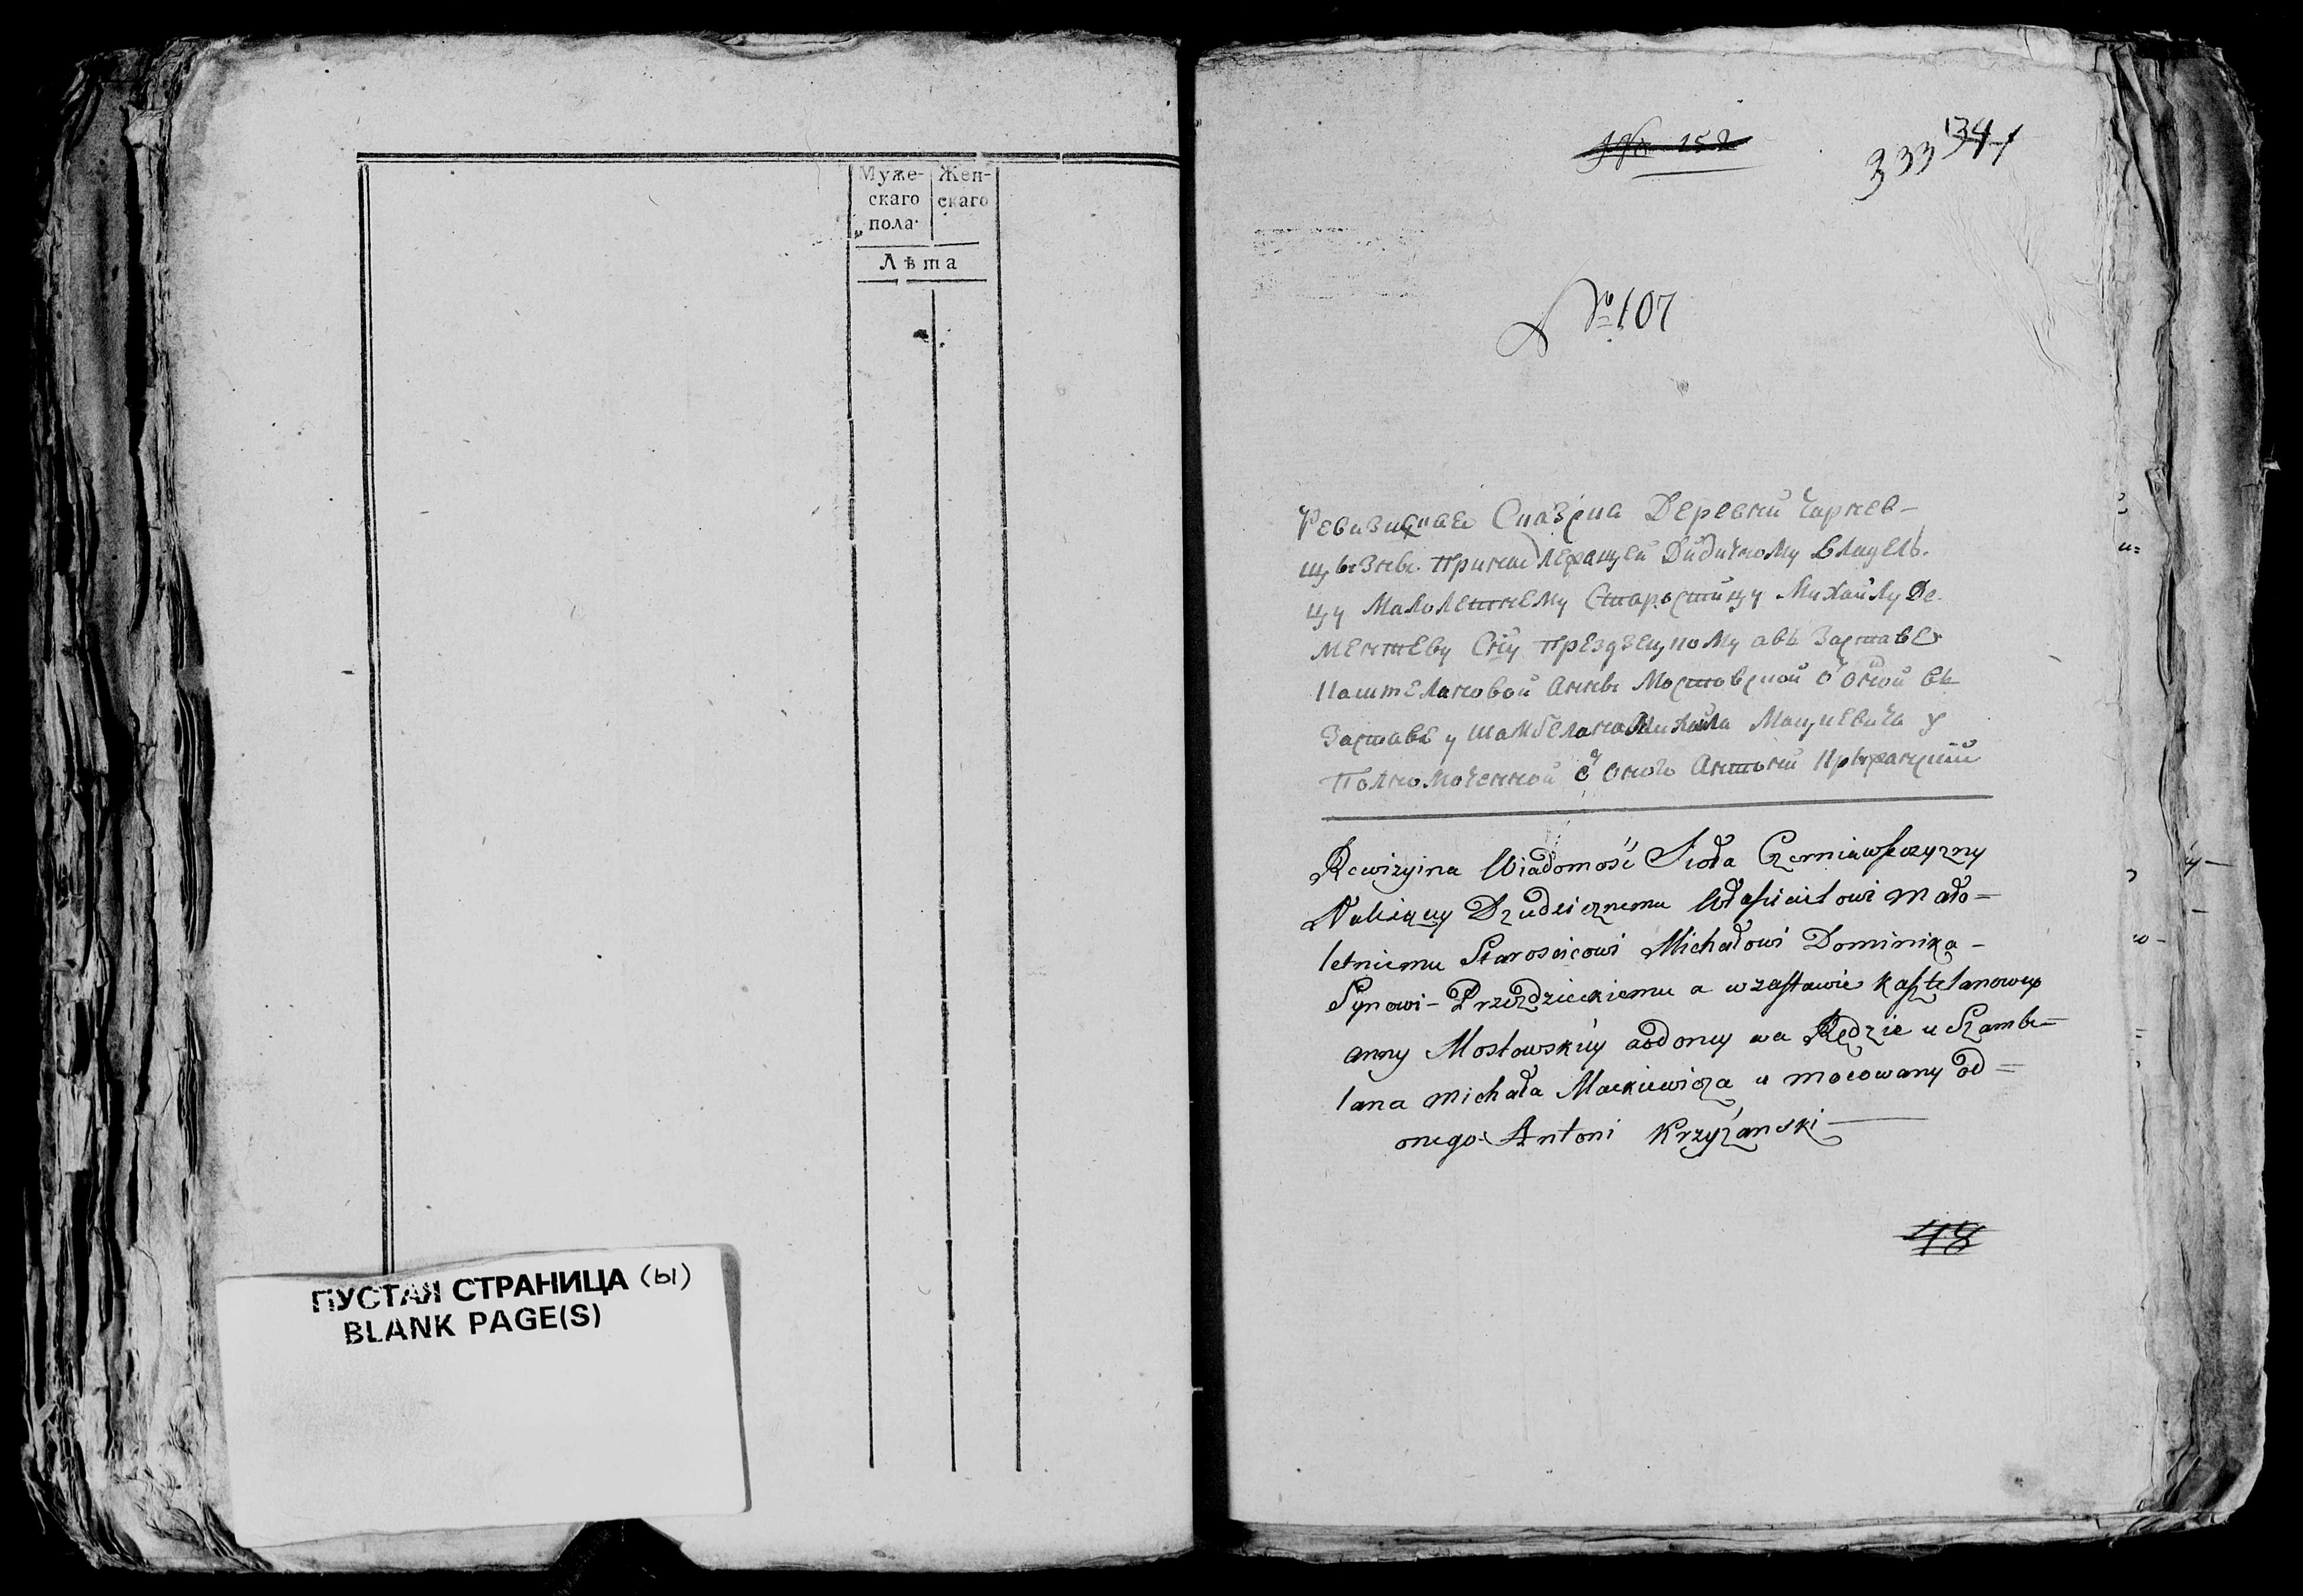 Муже-
скаго
пола
Жен-
скаго
Лѣта
ПУСТАЯ СТРАНИЦА (ы)
BLANK PAGE(S)
№ 152
333
№ 107
Ревизиская Сказска Деревни Чарнев-
щызны принадлежащей Дидичному Владель-
цу Малолетнему Старостицу Михайлу До-
Заставе
Каштеляновой Анны Мостовской
Заставе у Шамбеляна Михайла Мацкевича
Полномоченной Оного Антоний Крыжанский
Rewizyina Wiadomość Sioła Czerniawszczyzny
Należący Dziedzicznemu Właścicielowi mało=
letniemu Starościcowi Michałowi Dominika-
Synowi - Przezdzieckiemu a w zastawie Kasztelanowey
anny Mostowskiey u Szambe=
lana Michała Mackiewicza u mocowany od =
onego Antoni Krzyżanski
48